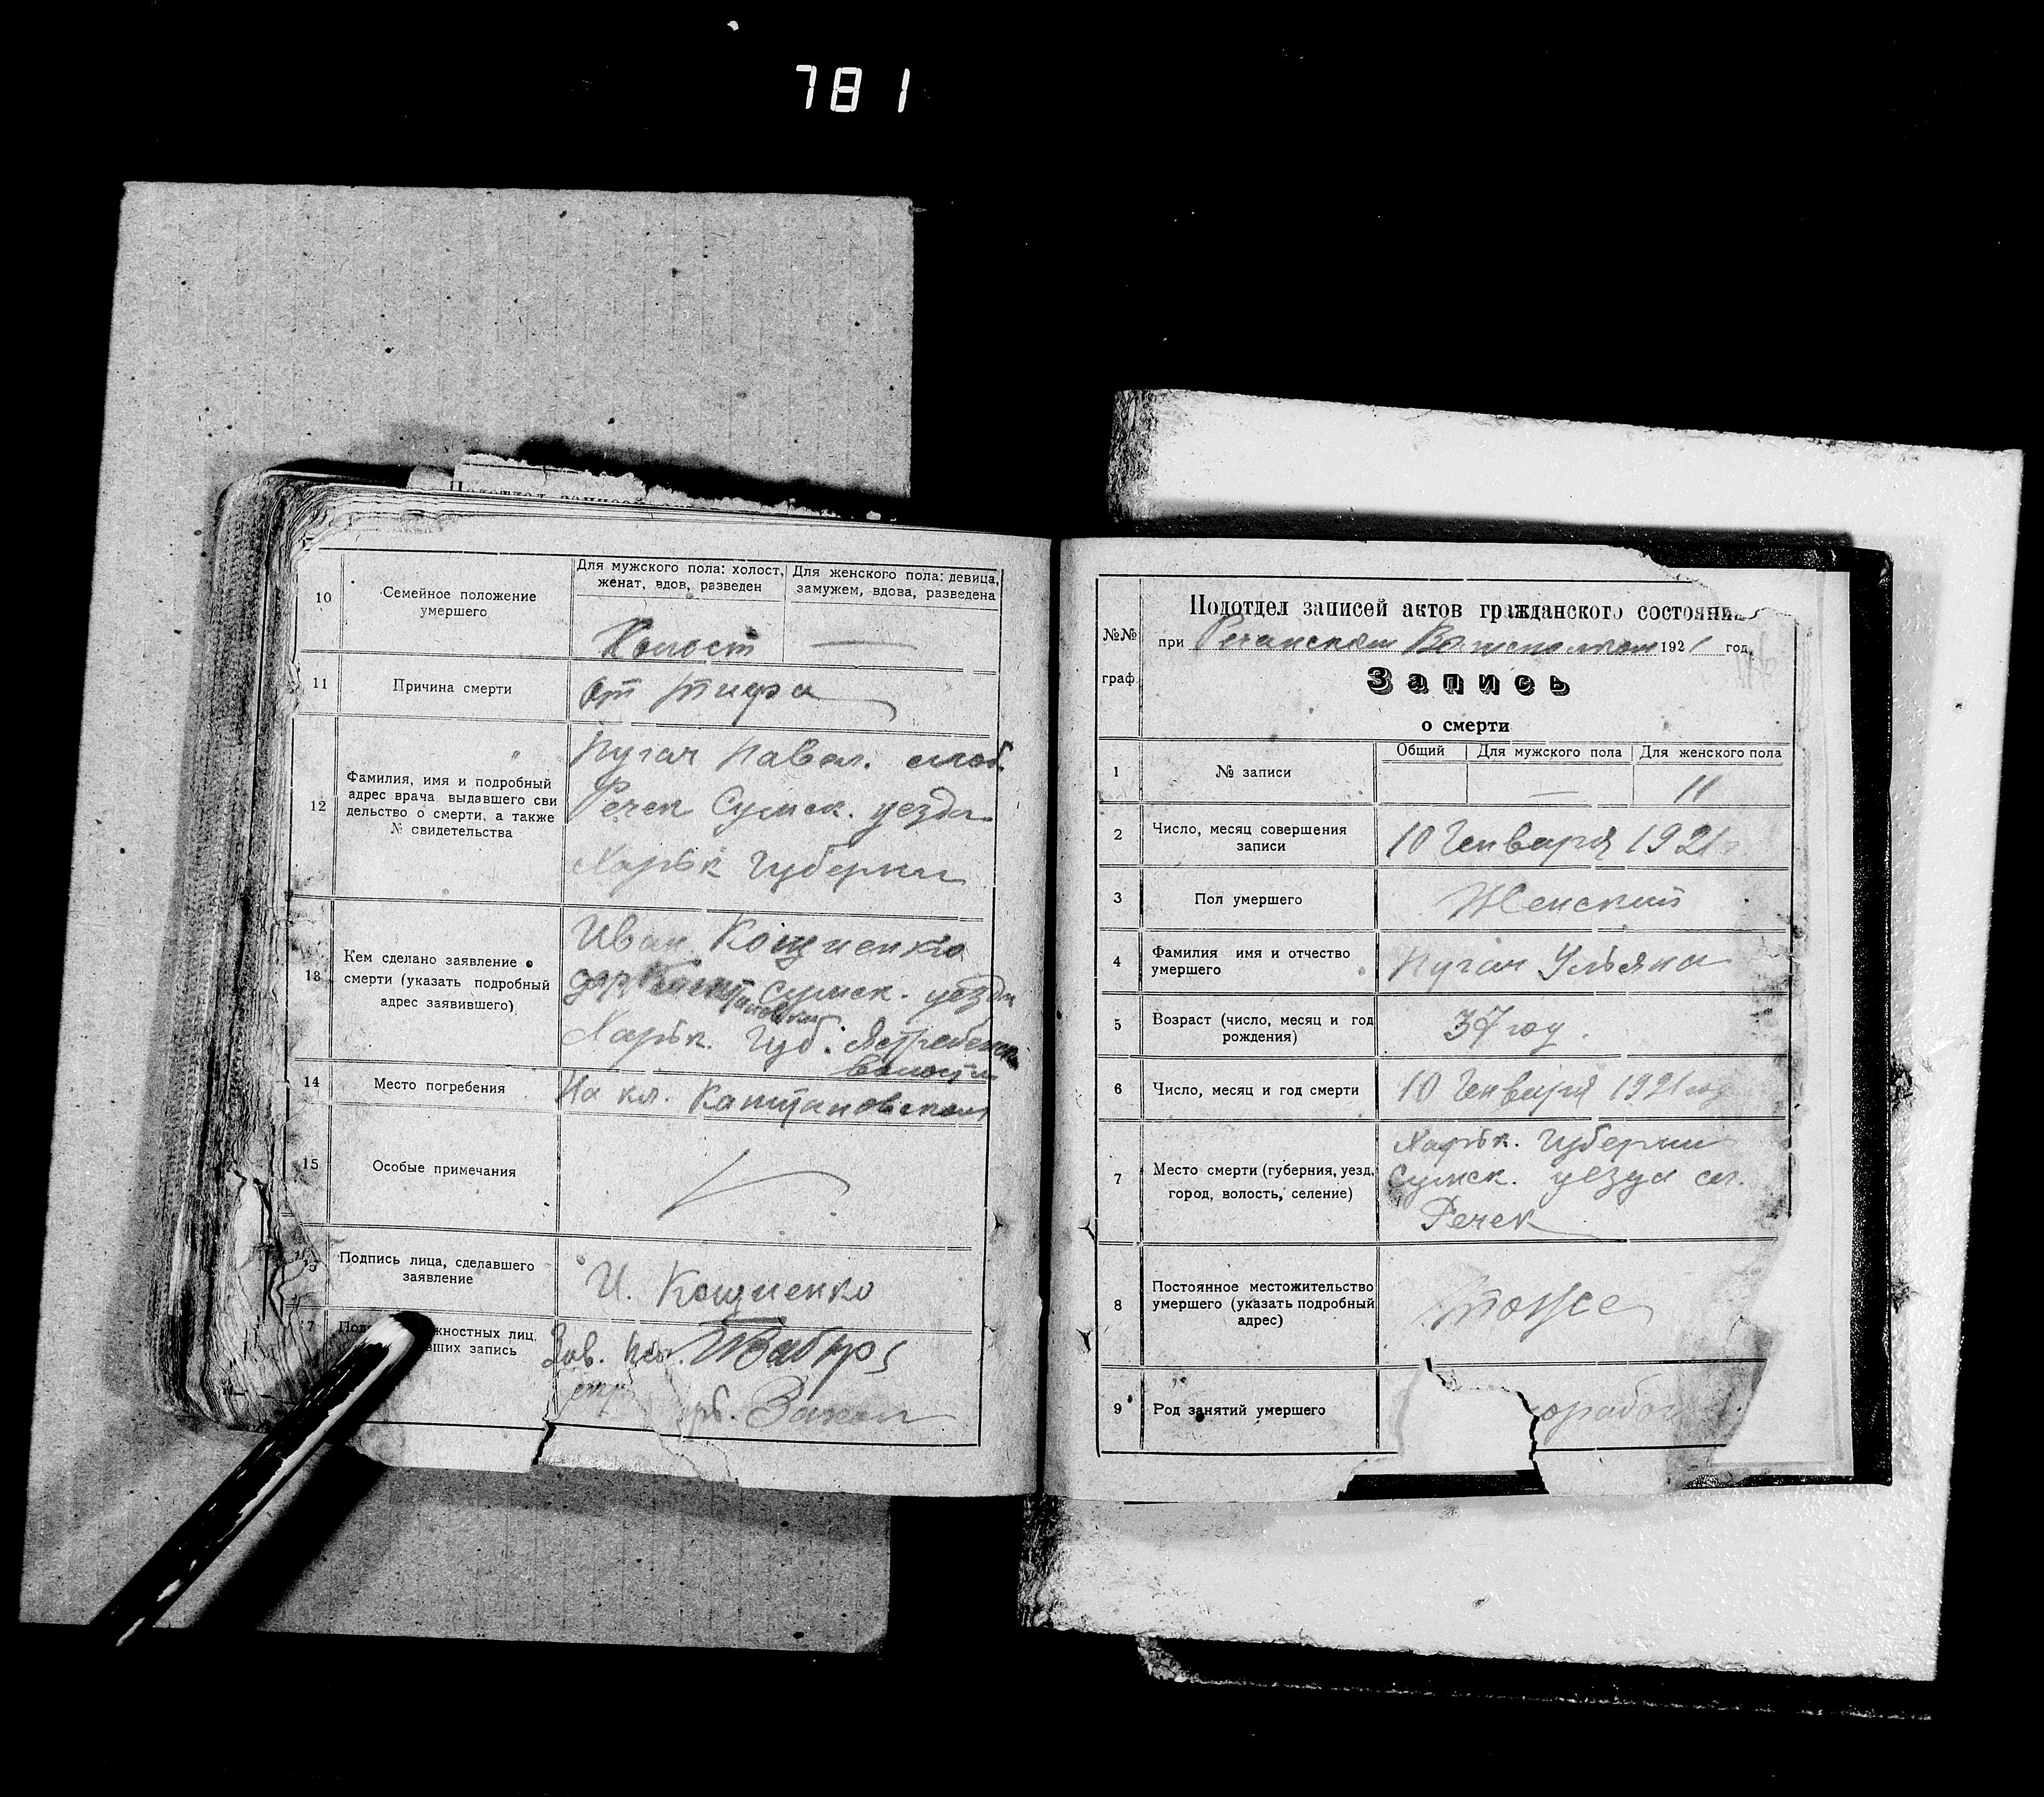 781
Подотдел записей
10
Семейное положение
умершего
Для мужского пола: холост,
женат, вдов, разведен
Для женского пола: девица,
замужем, вдова, разведена
Холост
11
Причина смерти
От тифа
12
Фамилия, имя и подробный
адрес врача выдавшего сви
дельство о смерти, а также
№ свидетельства
Пугач Павел. слоб.
Речек Сумск. уезда
Харьк Губернии
13
Кем сделано заявление о
смерти (указать подробный
адрес заявившего)
Иван Кощиенко
Сумск. уезда
Харьк. Губ. Ястребенск
волости
14
Место погребения
На кл. Каштановском
15
Особые примечания
Подпись лица, сделавшего
заявление
И. Кощиенко
17
жностных лиц,
вших запись
Зав.
№№
граф.
Подотдел записей актов гражданского состояния
при Речанском Волисполком 1921 год.
Запись
о смерти
1
№ записи
Общий
Для мужского пола
Для женского пола
11
2
Число, месяц совершения
записи
10 Генваря 1921 г
3
Пол умершего
Женский
4
Фамилия имя и отчество
умершего
Пугач Ульяна
5
Возраст (число, месяц и год
рождения)
37 год.
6
Число, месяц и год смерти
10 Генваря 1921 год
7
Место смерти (губерния, уезд,
город, волость, селение)
Харьк. Губернии
Сумск. уезда сл.
Речек
8
Постоянное местожительство
умершего (указать подробный
адрес)
тоже
9
Род занятий умершего